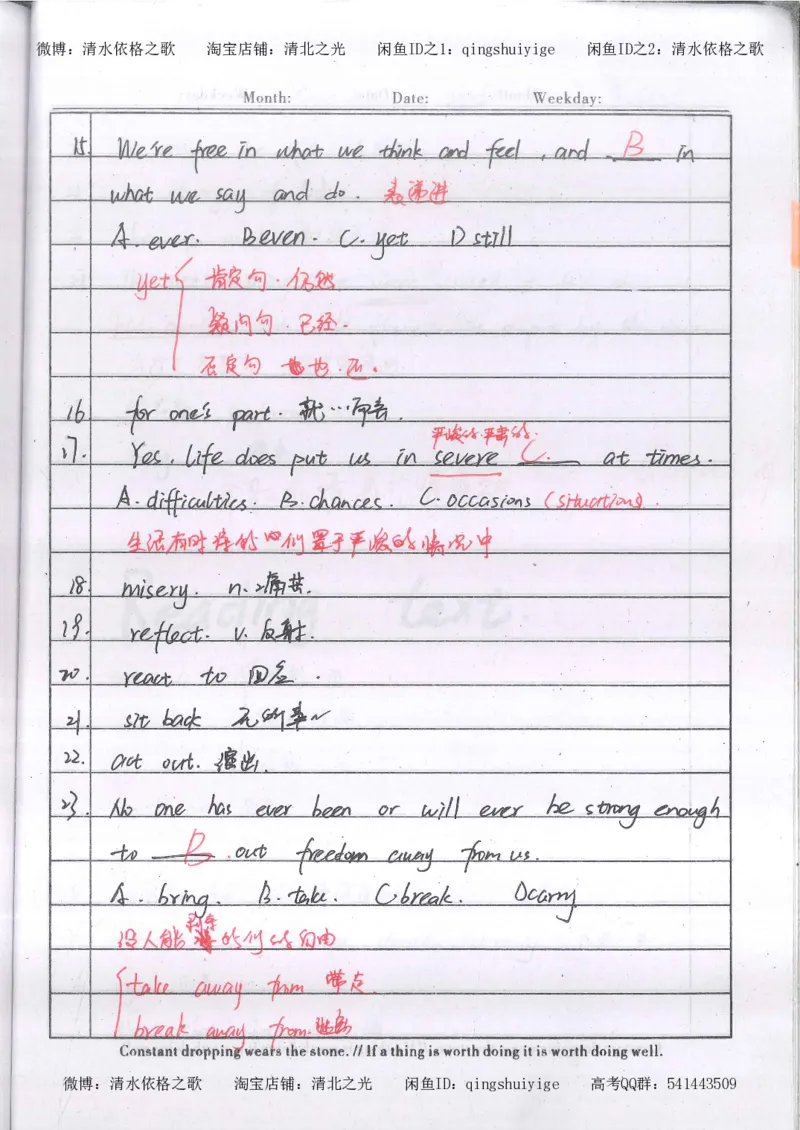 微博：清水依格之歌 淘宝店铺：清北之光 闲鱼ID之1：qingshuiyige 闲鱼ID之2：清水依格之歌
Month: Date: Weekday:
15. We're free in what we think and feel , and B in
what we say and do. 表递进
A. ever. B even. C. yet D still
yet { 肯定句. 仍然
疑问句. 已经.
否定句 也. 还.
16 for one's part. 就…而言.
严峻的.严肃的.
17. Yes, life does put us in severe C. at times.
A. difficulties. B. chances. C. occasions (situations).
生活有时将我们置于严峻的情况中
18. misery. n. 痛苦.
19. reflect. v. 反射.
20. react to 回应.
21. sit back
22. act out. 演出.
23. No one has ever been or will ever be strong enough
to B. out freedom away from us.
A. bring. B. take. C break. D carry
剥夺
没人能 我们的自由
take away from 带走.
break away from.
Constant dropping wears the stone. // If a thing is worth doing it is worth doing well.
微博：清水依格之歌 淘宝店铺：清北之光 闲鱼ID：qingshuiyige 高考QQ群：541443509